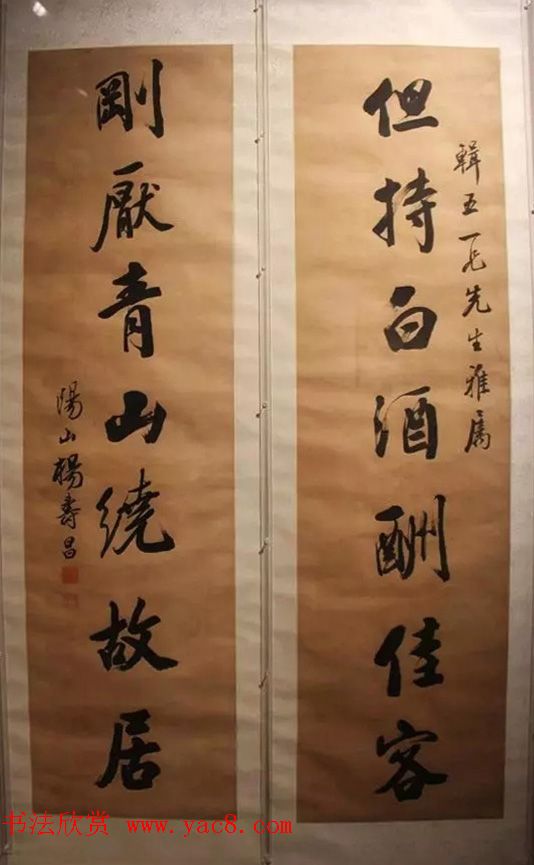 但持白酒酬佳客
輯五一兄先生雅属
剛厭青山繞故居
湯山楊壽昌
书法欣赏 www.yac8.com